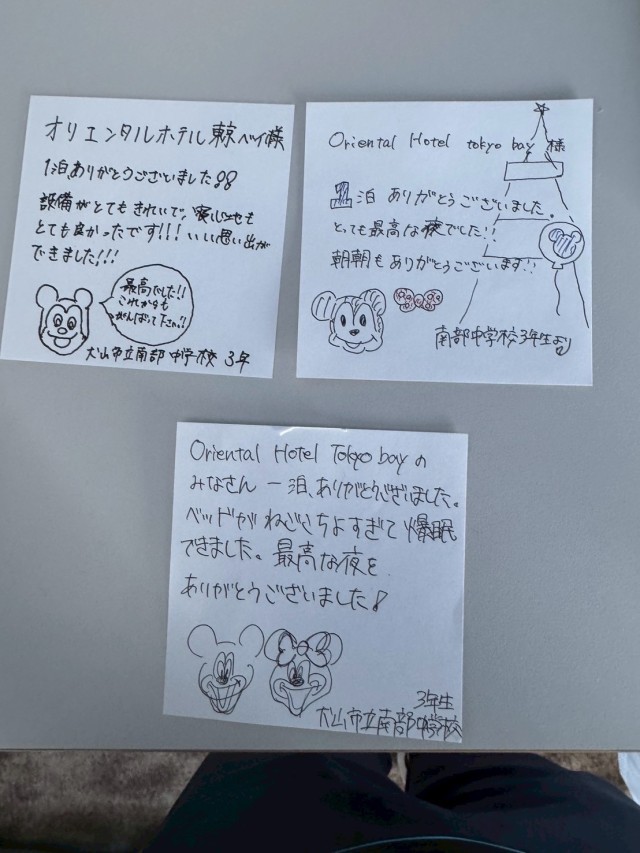 オリエンタルホテル東京ベイ様
1泊ありがとうございました!!
設備がとてもきれいで、寝心地も
とても良かったです!!! いい思い出が
できました!!!
最高でした!!
これからも
がんばって下さい!!
犬山市立南部中学校 3年
Oriental Hotel tokyo bay 様
1泊 ありがとうございました。
とっても最高な夜でした!!
朝朝もありがとうございます!!
南部中学校3年生より
Oriental Hotel Tokyo bay の
みなさん 一泊、ありがとうございました。
ベッドが ねごこちよすぎて 爆眠
できました。最高な夜を
ありがとうございました!
3年生
犬山市立南部中学校